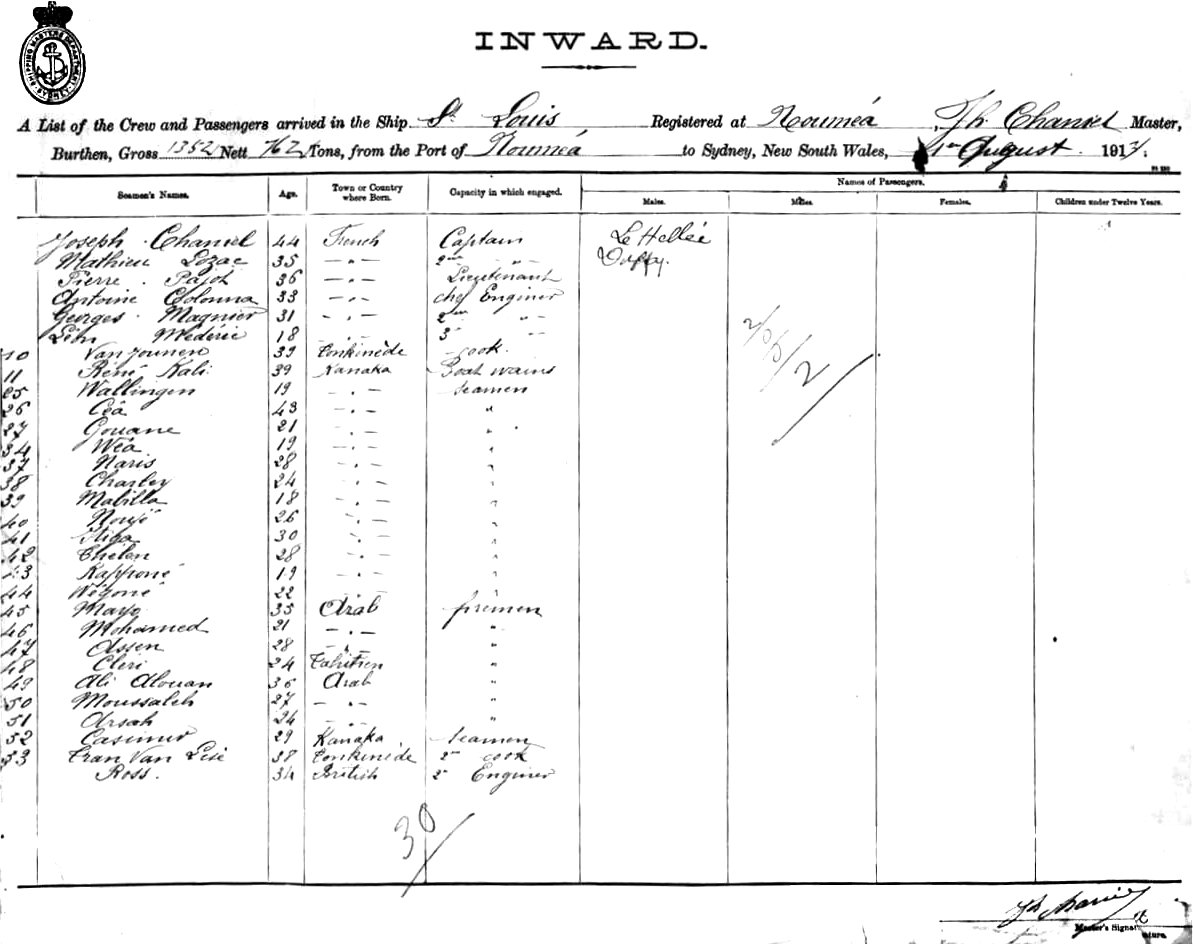 SHIPPING MASTERS DEPARTMENT SYDNEY
INWARD.
A List of the Crew and Passengers arrived in the Ship St Louis Registered at Nouméa, Jh Chaniel Master,
Burthen, Gross 1352 Nett 762 Tons, from the Port of Nouméa to Sydney, New South Wales, August 191
Seamen's Names. Age. Town or Country where Born. Capacity in which engaged. Names of Passengers.
Males. Males. Females. Children under Twelve Years.
Joseph Chaniel 44 French Captain Le Hellée
Mathieu Lozac 35 — " — 2me " Duffy.
Pierre Pajot 36 — " — Lieutenant
Antoine Colonna 33 — " — chef Enginer
Georges Magnier 31 — " — 2me "
Léon Méderic 18 — " — 3e "
10 Van younen 39 Tonkinède cook.
11 René Kali 39 Kanaka Boat wains
25 Wallingen 19 — " — seamen
26 Céa 43 — " — "
27 Gouane 21 — " — "
34 Wéa 19 — " — "
37 Naris 28 — " — "
38 Charley 24 — " — "
39 Mabilla 18 — " — "
40 26 — " — "
41 30 — " — "
42 Thélen 28 — " — "
43 Kapponé 19 — " — "
44 Wégoné 22 — " — "
45 Mayo 35 Arab firemen
46 Mohamed 21 — " — "
47 Assen 28 — " — "
48 Cleri 24 Tahitien "
49 Ali Alouan 36 Arab "
50 Moussaleh 27 — " — "
51 Arsah 24 — " — "
52 Casimir 29 Kanaka seamen
53 Tran Van Lise 38 Tonkinède 2e cook
Ross. 34 British 2e Enginer
30/
Jh Chaniel
Master's Signature.